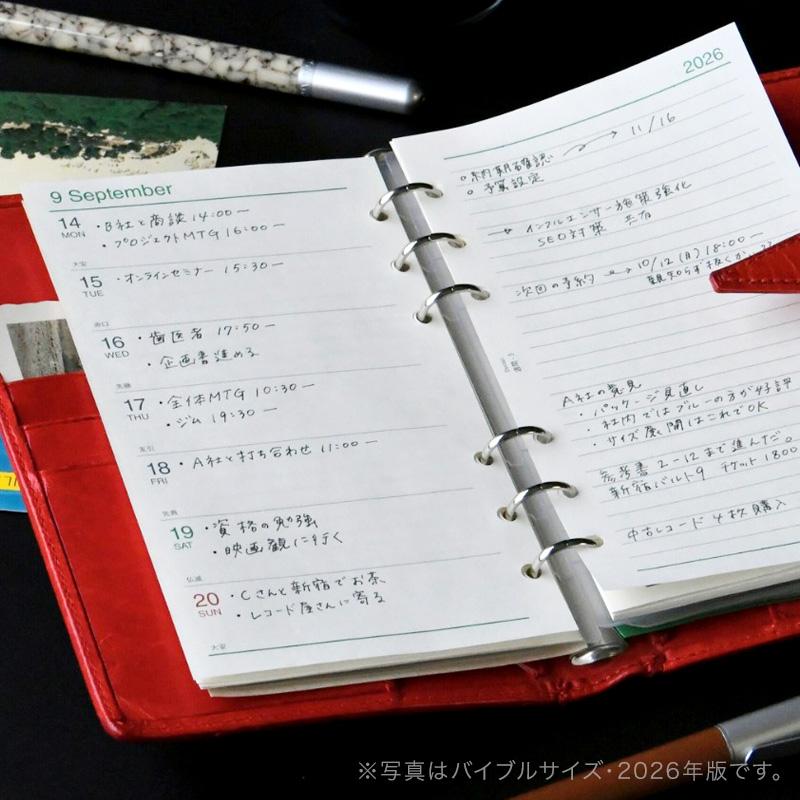 9 September
14
MON
・B社と商談 14:00―
・プロジェクトMTG 16:00―
大安
15
TUE
・オンラインセミナー 15:30―
赤口
16
WED
・歯医者 17:50―
・企画書進める
先勝
17
THU
・全体MTG 10:30―
・ジム 19:30―
友引
18
FRI
・A社と打ち合わせ 11:00―
先負
19
SAT
・資格の勉強
・映画観に行く
仏滅
20
SUN
・Cさんと新宿でお茶
・レコード屋さんに寄る
大安
2026
納期確認 → 11/16
予算設定
→ インフルエンサー施策強化
SEO対策 共有
次回の予約 → 10/12(月) 18:00―
親知らず抜くかい??
A社の意見
・パッケージ見直し
・社内ではブルーの方が好評
・サイズ展開はこれでOK
参考書 2-12まで進んだ。
新宿バルト9 チケット1800
中古レコード 4枚購入
※写真はバイブルサイズ・2026年版です。